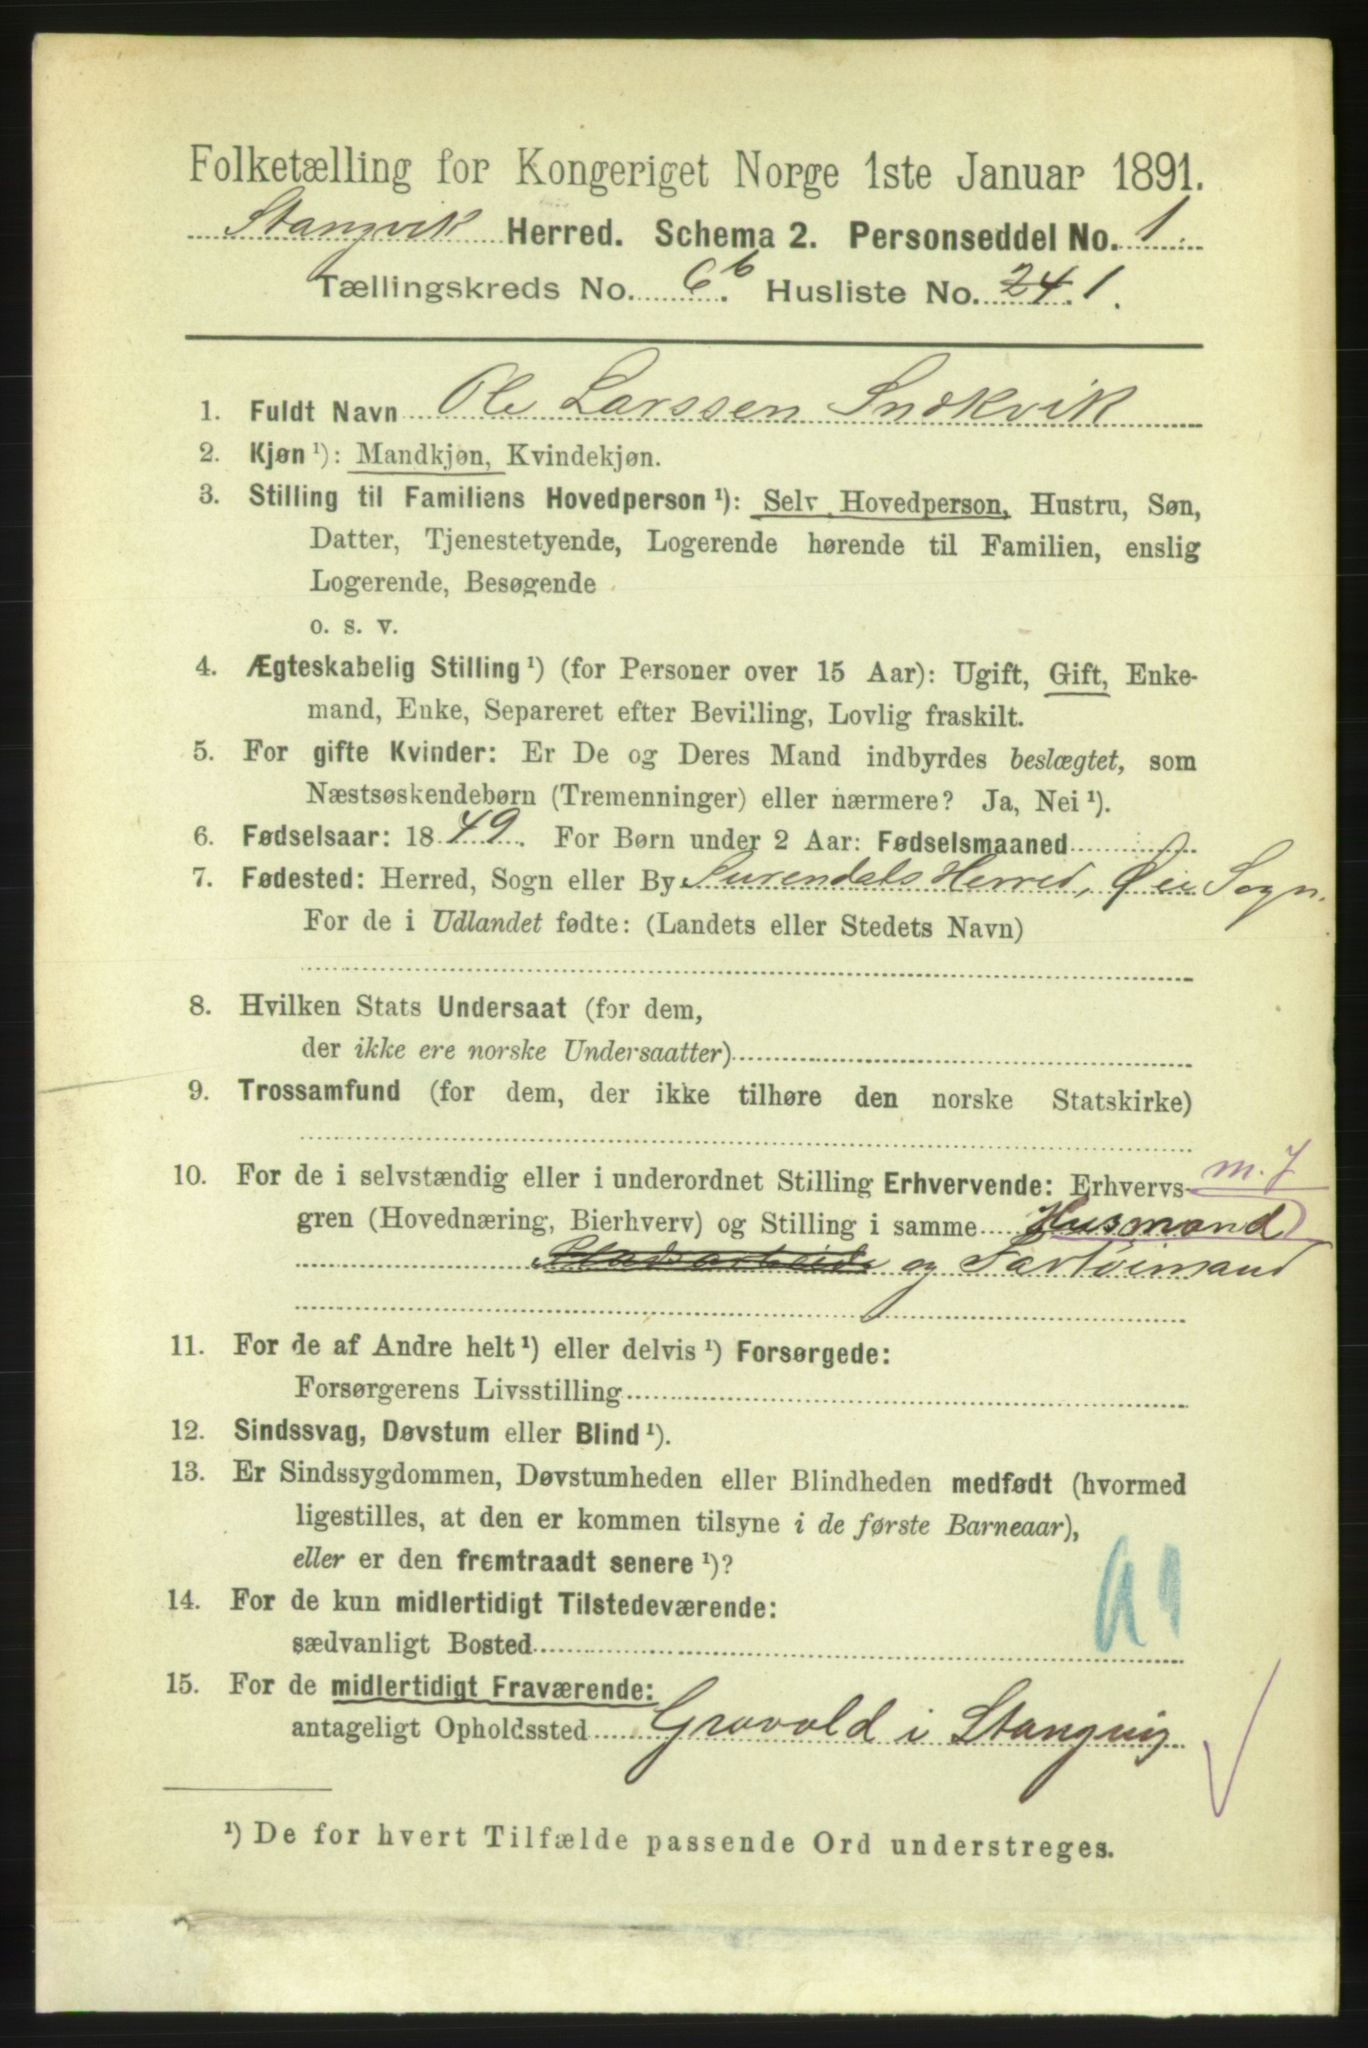 Folketælling for Kongeriget Norge 1ste Januar 1891.
Stangvik Herred. Schema 2. Personseddel No. 1.
Tællingskreds No. 6b. Husliste No. 24.1.
1. Fuldt Navn Ole Larssen Snekvik
2. Kjøn¹): Mandkjøn, Kvindekjøn.
3. Stilling til Familiens Hovedperson¹): Selv Hovedperson, Hustru, Søn,
Datter, Tjenestetyende, Logerende hørende til Familien, enslig
Logerende, Besøgende
o. s. v.
4. Ægteskabelig Stilling¹) (for Personer over 15 Aar): Ugift, Gift, Enke-
mand, Enke, Separeret efter Bevilling, Lovlig fraskilt.
5. For gifte Kvinder: Er De og Deres Mand indbyrdes beslægtet, som
Næstsøskendebørn (Tremenninger) eller nærmere? Ja, Nei¹).
6. Fødselsaar: 1849. For Børn under 2 Aar: Fødselsmaaned
7. Fødested: Herred, Sogn eller By Surendals Herred, Øie Sogn.
For de i Udlandet fødte: (Landets eller Stedets Navn)
8. Hvilken Stats Undersaat (for dem,
der ikke ere norske Undersaatter)
9. Trossamfund (for dem, der ikke tilhøre den norske Statskirke)
10. For de i selvstændig eller i underordnet Stilling Erhvervende: Erhvervs- m. J
gren (Hovednæring, Bierhverv) og Stilling i samme Husmand
og Fartøimand
11. For de af Andre helt¹) eller delvis¹) Forsørgede:
Forsørgerens Livsstilling
12. Sindssvag, Døvstum eller Blind¹).
13. Er Sindssygdommen, Døvstumheden eller Blindheden medfødt (hvormed
ligestilles, at den er kommen tilsyne i de første Barneaar),
eller er den fremtraadt senere¹)?
14. For de kun midlertidigt Tilstedeværende:
sædvanligt Bosted
15. For de midlertidigt Fraværende:
antageligt Opholdssted Gravold i Stangvig
¹) De for hvert Tilfælde passende Ord understreges.